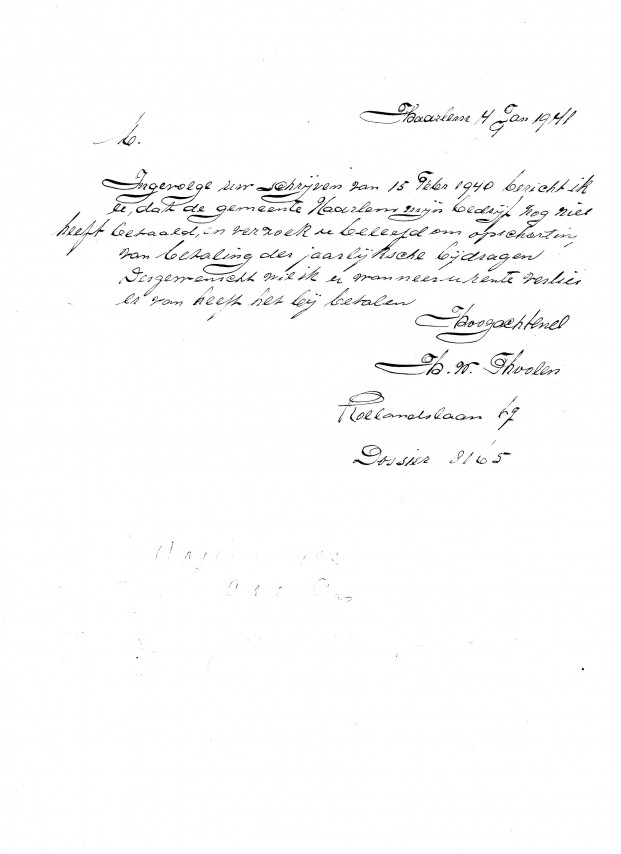 Haarlem 4 Jan 1941
M.
Ingevolge uw schrijven van 15 Febr 1940 bericht ik
u, dat de gemeente Haarlem mijn bedrijf nog niet
heeft betaald, en verzoek u beleefd om opschorting
van betaling der jaarlijksche bijdragen
Desgewenscht wil ik u wanneer u rente verlies
er van heeft het bij betalen
Hoogachtend
H. W. Thoolen
Roelandslaan 67
Dossier 3165